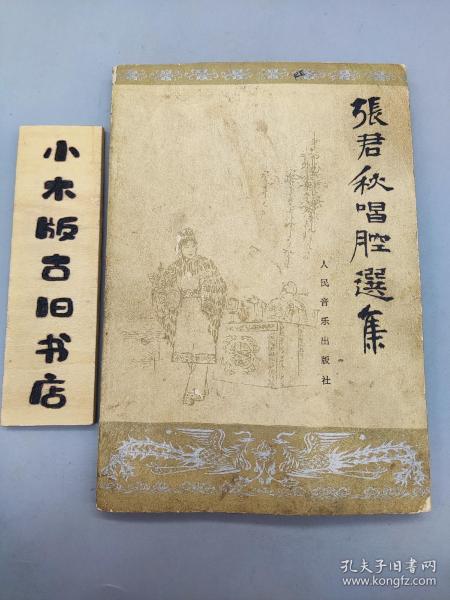 張君秋唱腔選集
人民音乐出版社
小木版古旧书店
孔夫子旧书网
www.kongfz.com